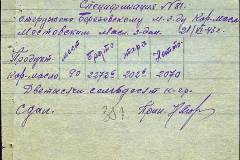 Спецификация №81.
отгружено Березовскому м.з-ду Кор-масло
Мостовским масл. з-дом. 21/VI-45 г.
Продукт мест брутто тара Нетто
кор-масло. 90 2272 кг 202 кг 2070
Две тысячи семьдесят к-гр.
Сдал. 381 Прин.